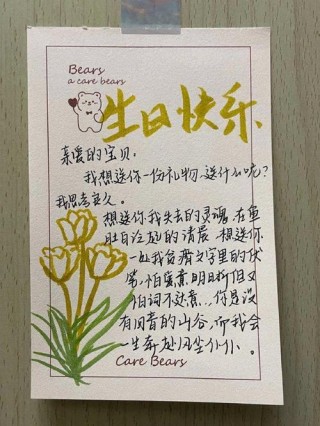 Bears
a care bears
生日快乐
亲爱的宝贝,
我想送你一份礼物,送什么呢?
我思考良久。
想送你我失去的灵魂,在鱼
肚白泛起的清晨 想送你
一处我贫瘠文字里的伏
笔,怕寓意明目张胆又
怕词不达意.,你是没
有回音的山谷,而我会
一生奔赴风尘仆仆。
Care Bears